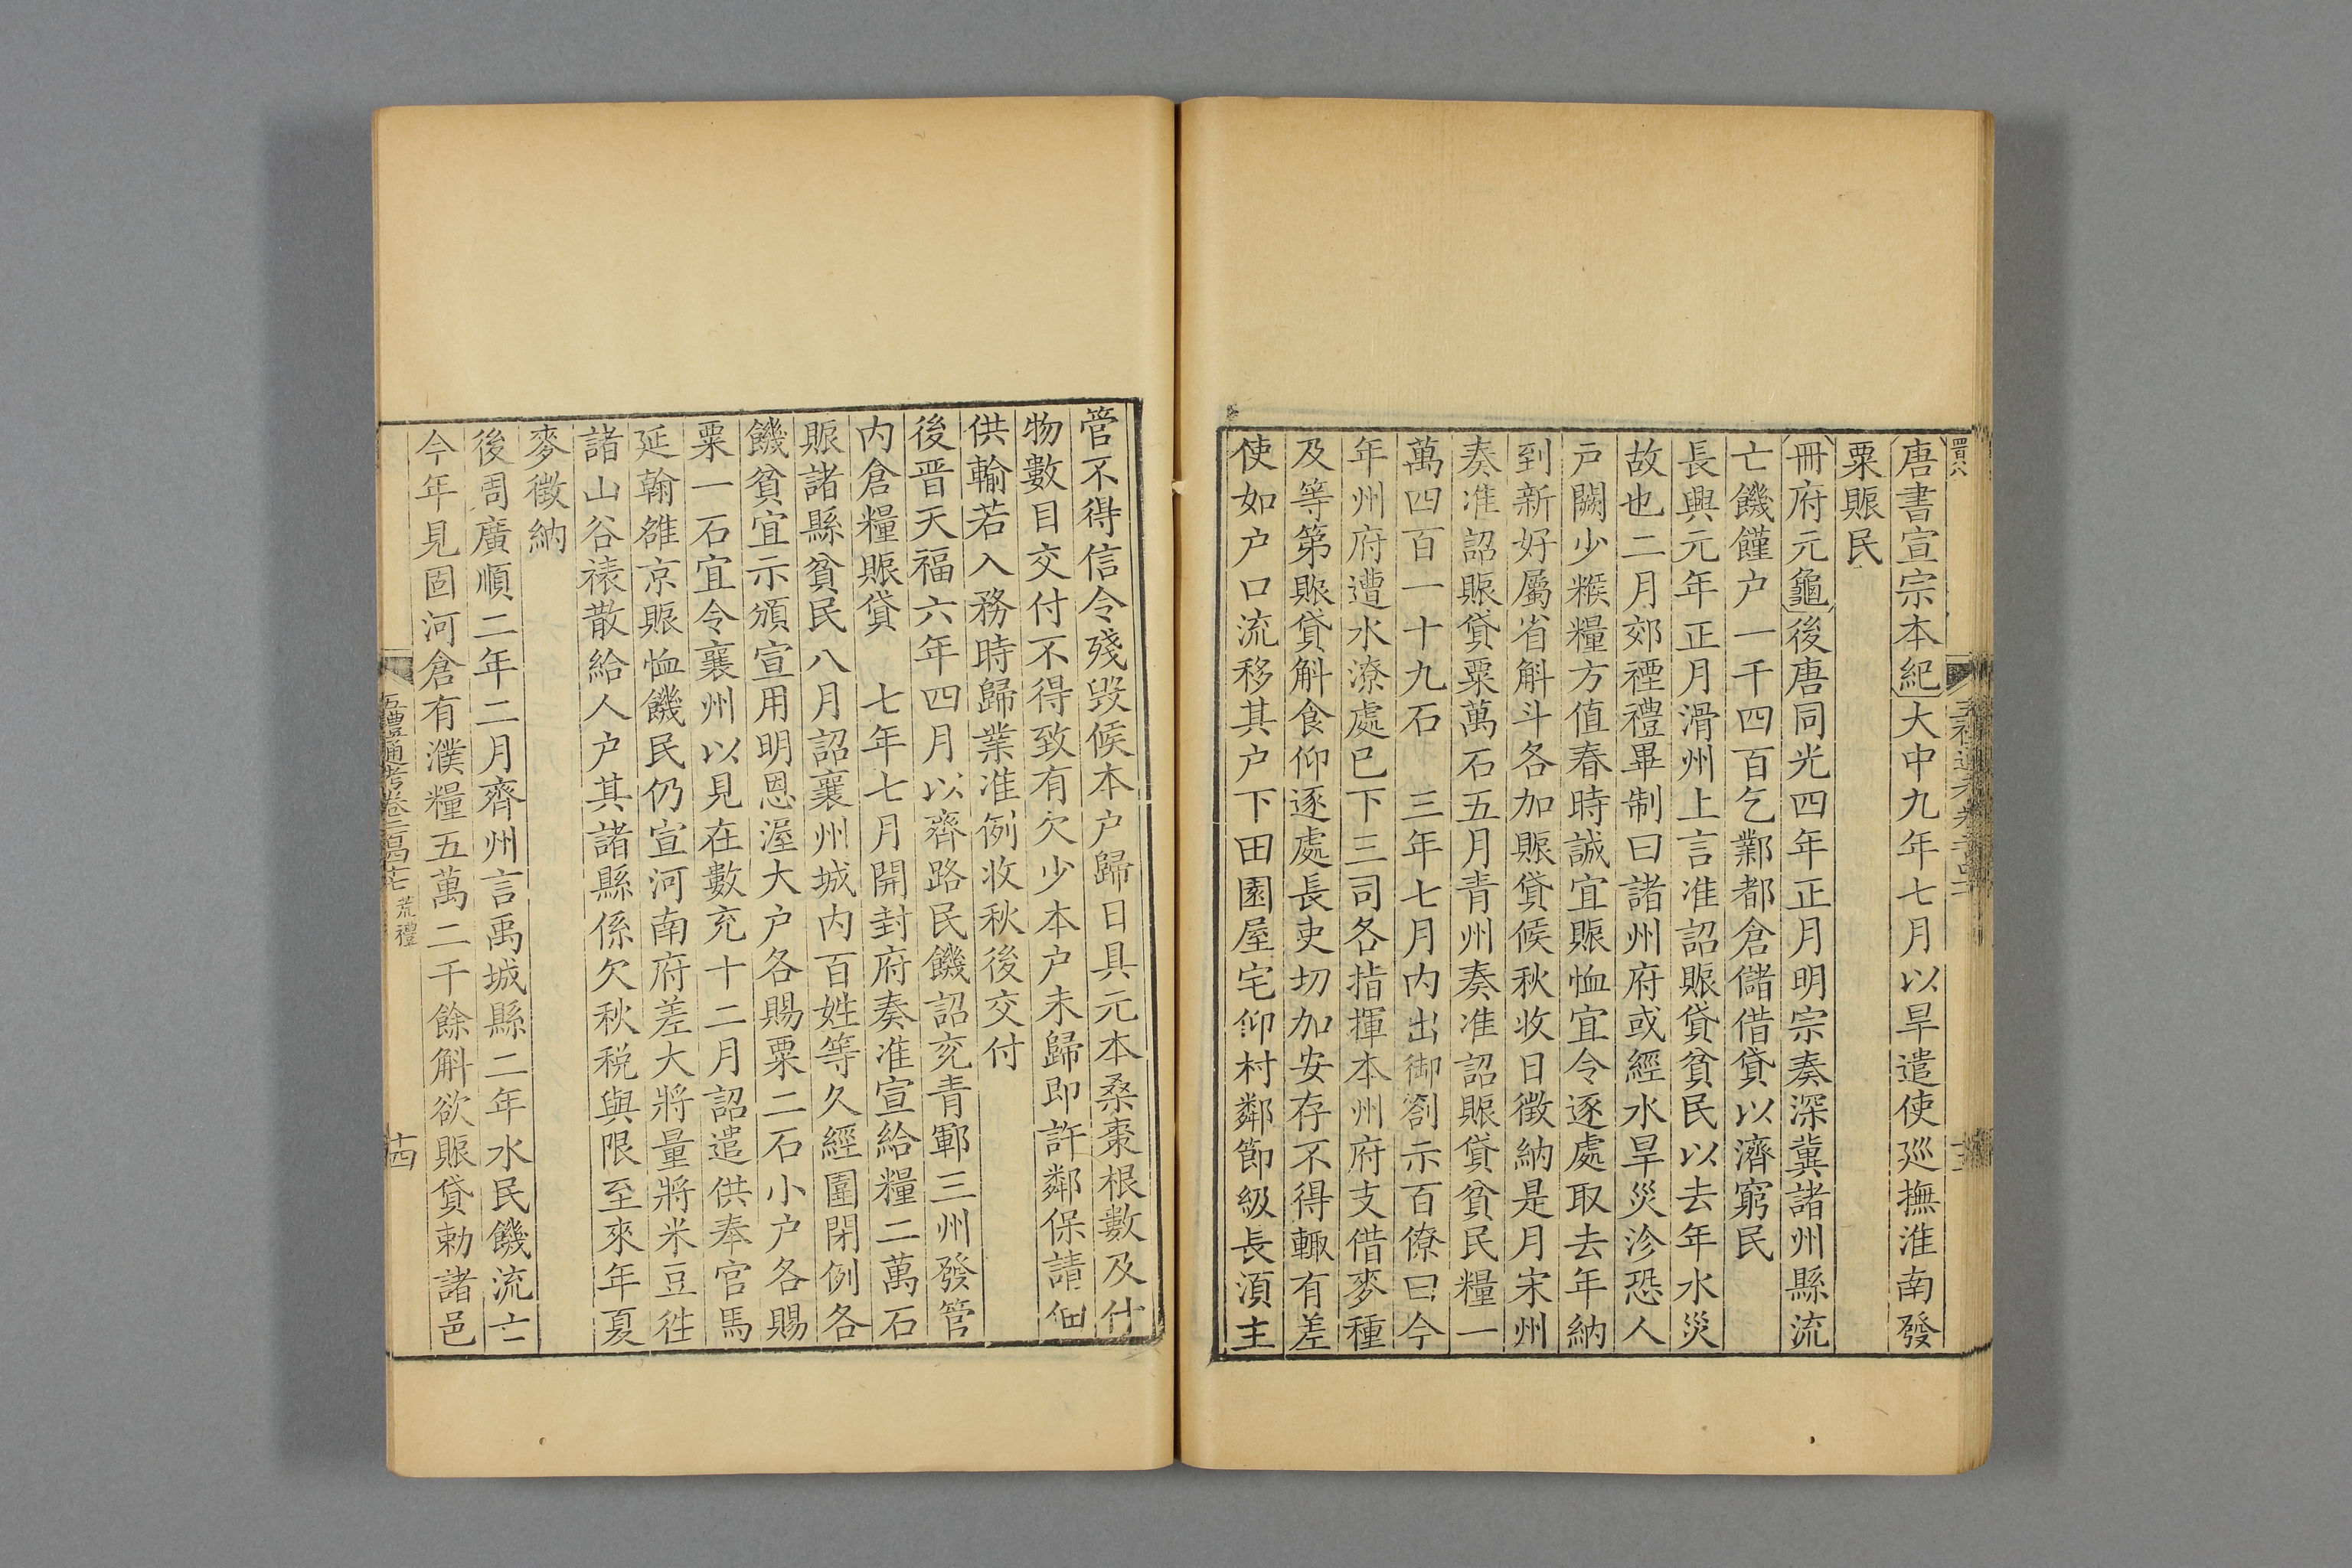 唐書宣宗本紀大中九年七月以旱遣使巡撫淮南發
粟賑民
冊府元龜後唐同光四年正月明宗奏深冀諸州縣流
亡饑饉户一千四百乞鄴都倉儲借貸以濟窮民
長興元年正月滑州上言准詔賑貸貧民以去年水災
故也二月郊禋禮畢制曰諸州府或經水旱災沴恐人
戸闕少糇糧方值春時誠宜賑恤宜令逐處取去年納
到新好屬省斛斗各加賑貸候秋收日徵納是月宋州
奏准詔賑貸粟萬石五月青州奏准詔賑貸貧民糧一
萬四百一十九石　三年七月内出御劄示百僚曰今
年州府遭水潦處已下三司各指揮本州府支借麥種
及等第賑貸斛食仰逐處長吏切加安存不得輙有差
使如户口流移其户下田園屋宅仰村鄰節級長湏主
管不得信令殘毁候本户歸日具元本桑棗根數及什
物數目交付不得致有欠少本户未歸即許鄰保請佃
供輸若入務時歸業准例收秋後交付
後晋天福六年四月以齊路民饑詔兖青鄆三州發管
内倉糧賑貸　七年七月開封府奏准宣給糧二萬石
賑諸縣貧民八月詔襄州城内百姓等久經圍閉例各
饑貧宜示頒宣用明恩渥大户各賜粟二石小户各賜
粟一石宜令襄州以見在數充十二月詔遣供奉官馬
延翰雒京賑恤饑民仍宣河南府差大將量將米豆徃
諸山谷裱散給人户其諸縣係欠秋税與限至來年夏
麥徵納
後周廣順二年二月齊州言禹城縣二年水民饑流亡
今年見固河倉有濮糧五萬二千餘斛欲賑貸勅諸邑
五禮通考卷二百四十七 荒禮
十四